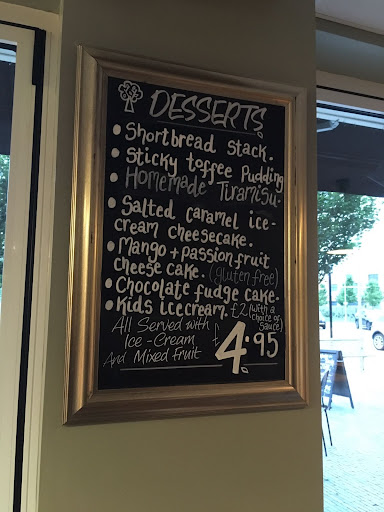 DESSERTS
• Shortbread Stack.
• Sticky toffee Pudding
• Homemade Tiramisu.
• Salted caramel ice-
cream cheesecake.
• Mango + passionfruit
cheese cake. (gluten free)
• Chocolate fudge cake.
• Kids icecream. £2 (with a
choice of
sauce)
All Served with
Ice-Cream
And Mixed fruit
£4.95